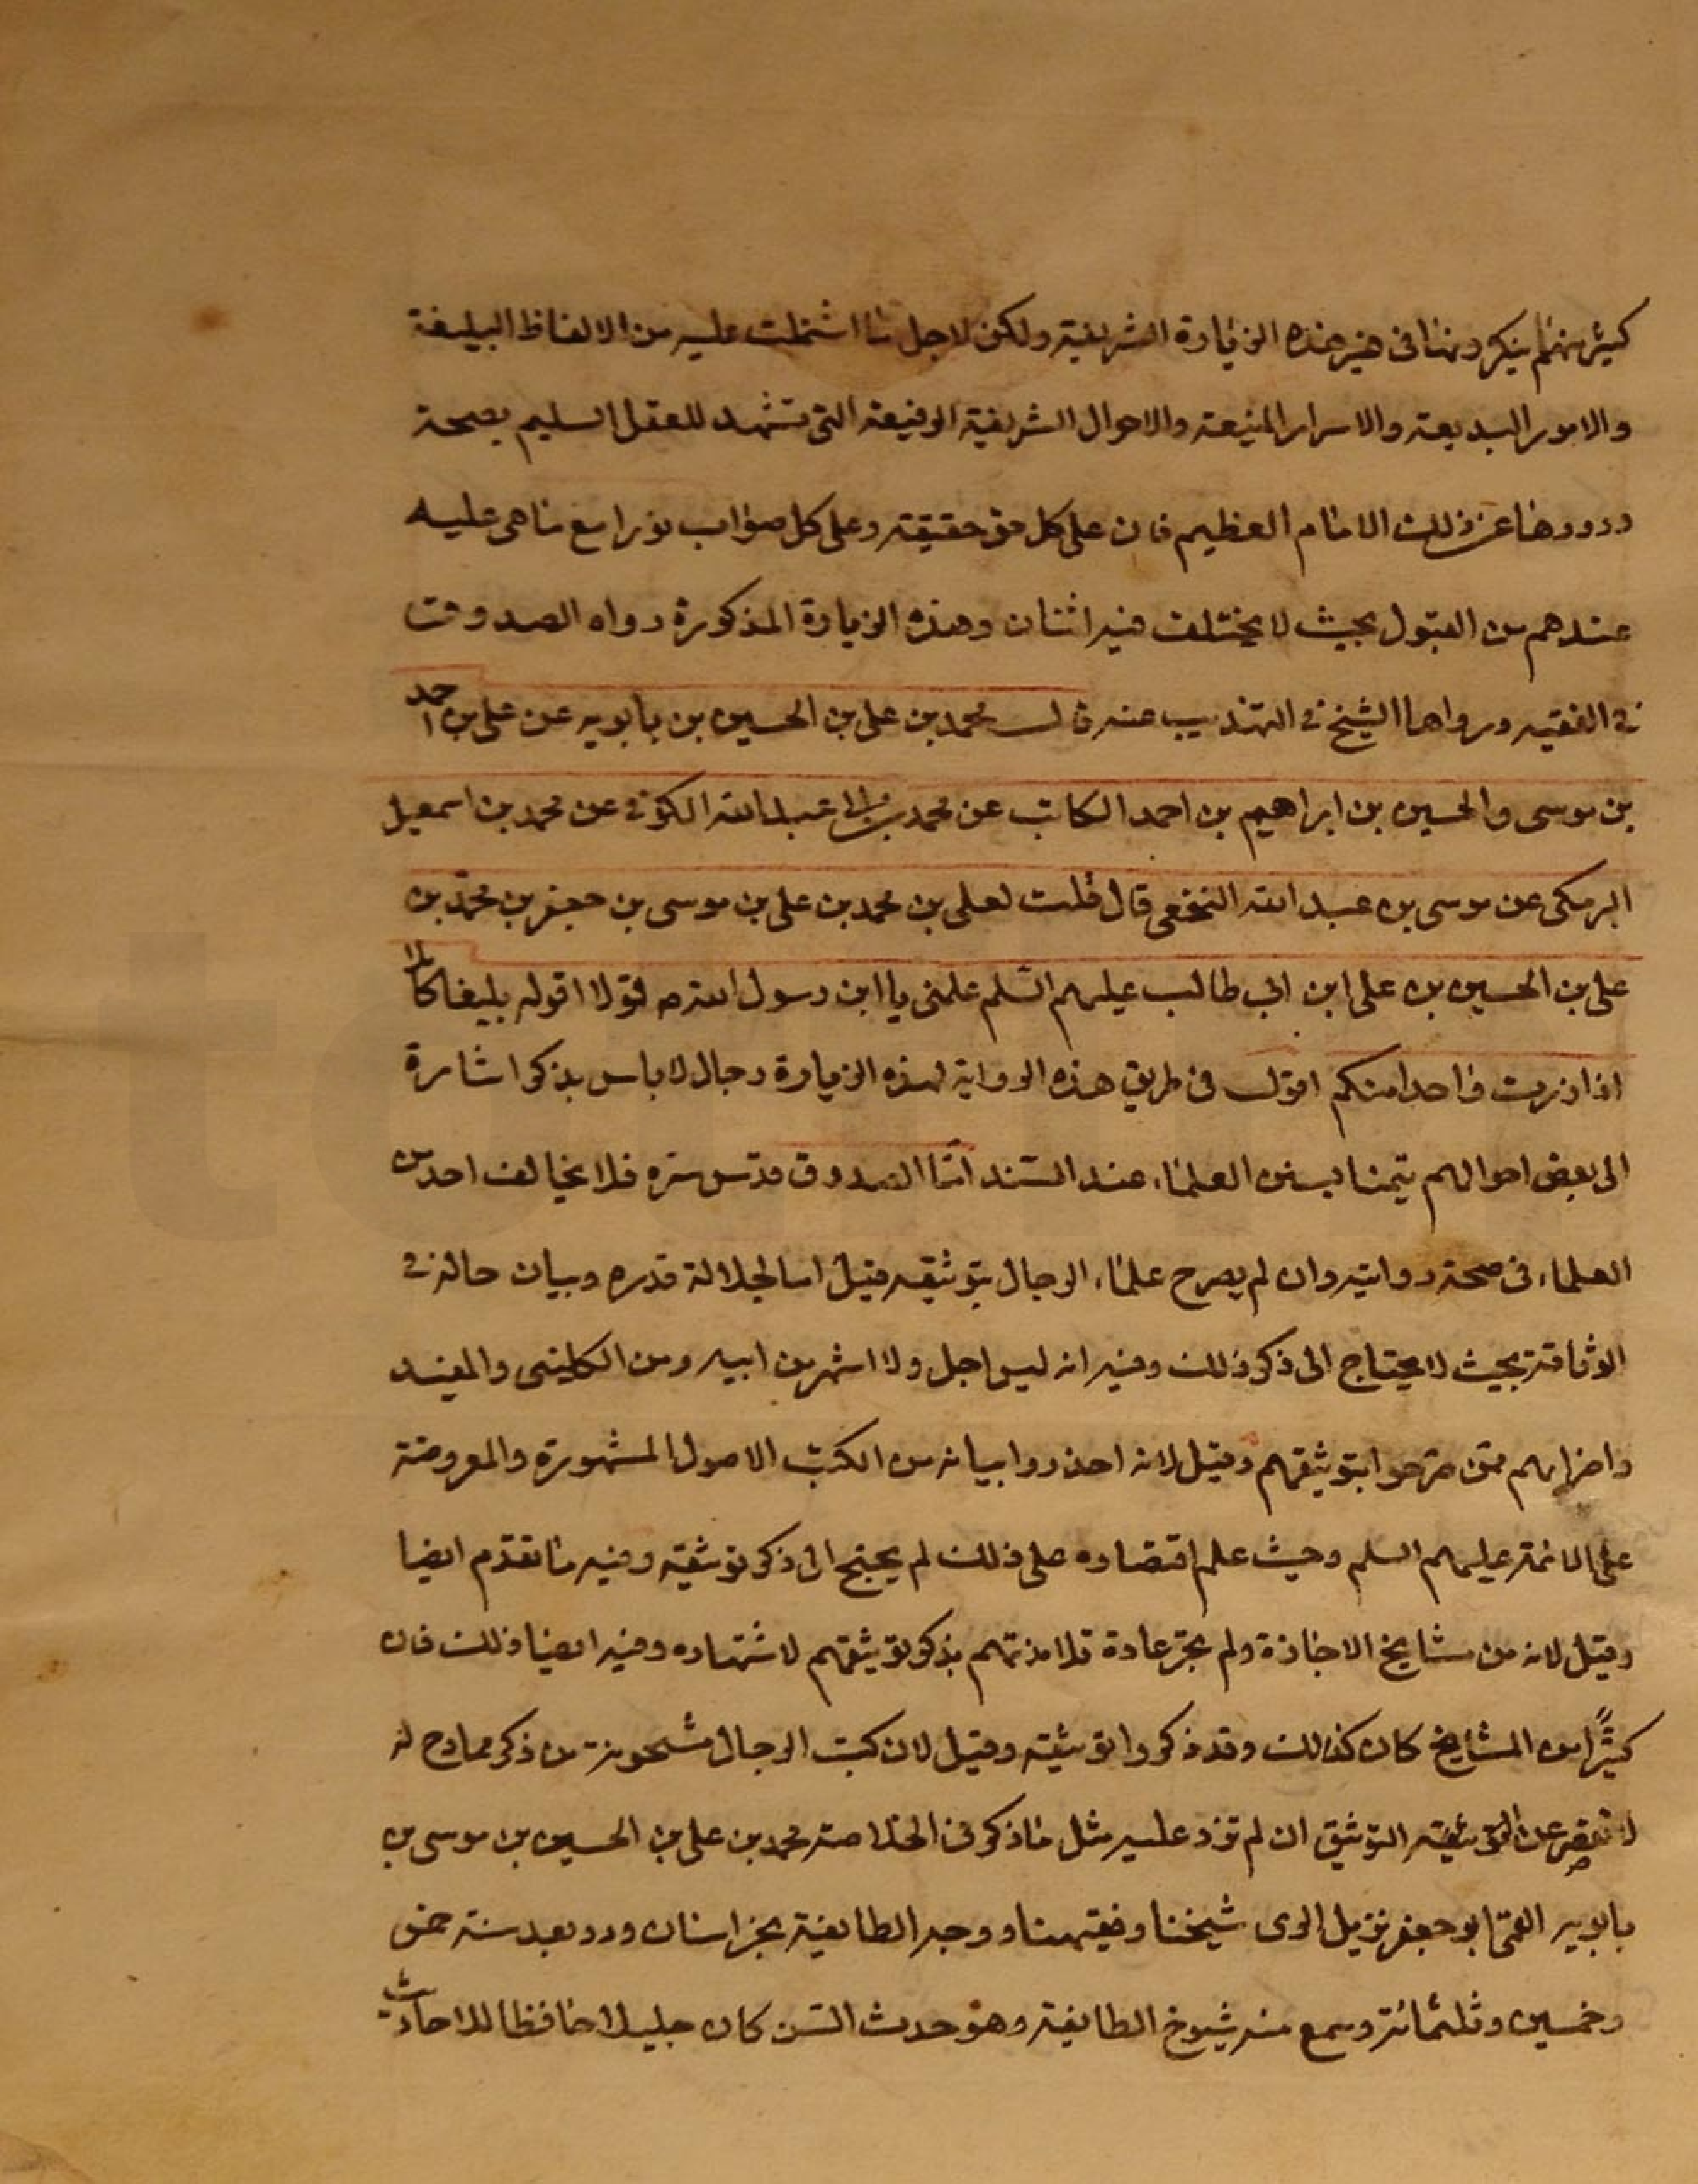 كثير منهم ينكرونها في غير هذه الزيارة الشريفة ولكن لاجل ما اشتملت عليه من الالفاظ البليغة
والامور البديعة والاسرار المنيعة والاحوال الشريفة الرفيعة التى تشهد للعقل السليم بصحة
ورودها عن ذلك الامام العظيم فان على كل حق حقيقة وعلى كل صواب نورا مع ما هى عليه
عندهم من القبول بحيث لا يختلف فيه اثنان وهذه الزيارة المذكورة رواه الصدوق
في الفقيه ورواها الشيخ في التهذيب عنه قال محمد بن على بن الحسين بن بابويه عن على بن احمد
بن موسى والحسين بن ابراهيم بن احمد الكاتب عن محمد بن ابى عبدالله الكوفي عن محمد بن اسمعيل
البرمكى عن موسى بن عبد الله النخعى قال قلت لعلى بن محمد بن على بن موسى بن جعفر بن محمد بن
على بن الحسين بن على ابن ابي طالب عليهم السلم علمنى يا ابن رسول الله ص قولا اقوله بليغا كاملا
اذا زرت واحدا منكم اقول في طريق هذه الرواية لهذه الزيارة رجال لا باس بذكر اشارة
الى بعض احوالهم تيمنا بسنن العلماء عند السند امّا الصدوق قدّس سرّه فلا يخالف احد من
العلماء في صحة روايته وان لم يصرح علماء الرجال بتوثيقه فقيل اما لجلالة قدره وبيان حاله في
الوثاقة بحيث لا يحتاج الى ذكر ذلك وفيه انه ليس اجل ولا اشهر من ابيه ومن الكلينى والمفيد
واضرابهم ممّن صرّحوا بتوثيقهم وقيل لانه اخذ رواياته من الكتب الاصول المشهورة والمعروضة
على الائمة عليهم السلم وحيث علم اقتصاره على ذلك لم يحتج الى ذكر توثيقه وفيه ما تقدّم ايضا
وقيل لانه من مشايخ الاجازة ولم تجر عادة تلامذتهم بذكر توثيقهم لاشتهاره وفيه ايضا ذلك فان
كثيرًا من المشايخ كان كذلك وقد ذكروا توثيقه وقيل لان كتب الرجال مشحونة من ذكر ممادح له
لا تقصر عن التوثيق ان لم تزد عليه مثل ما ذكر في الخلاصة محمد بن على بن الحسين بن موسى بن
بابويه القمّى ابو جعفر نزيل الرى شيخنا وفقيهنا ووجه الطايفة بخراسان ورد بغداد سنة خمس
وخمسين وثلثمائة وسمع منه شيوخ الطايفة وهو حدث السّن كان جليلا حافظا للاحاديث